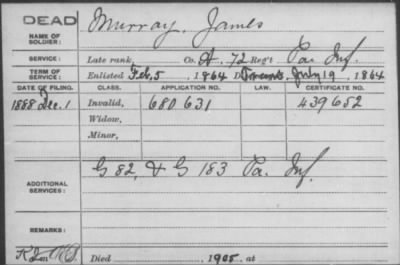 DEAD
NAME OF SOLDIER: Murray, James
SERVICE: Late rank, Co. A, 72 Reg't Pa. Inf.
TERM OF SERVICE: Enlisted Feb, 5, 1864 D July 19, 1864
DATE OF FILING. CLASS. APPLICATION NO. LAW. CERTIFICATE NO.
1888 Dec. 1 Invalid, 680 631 439 652
Widow,
Minor,
ADDITIONAL SERVICES: G 82, & G 183 Pa. Inf.
REMARKS:
Died , 1905, at